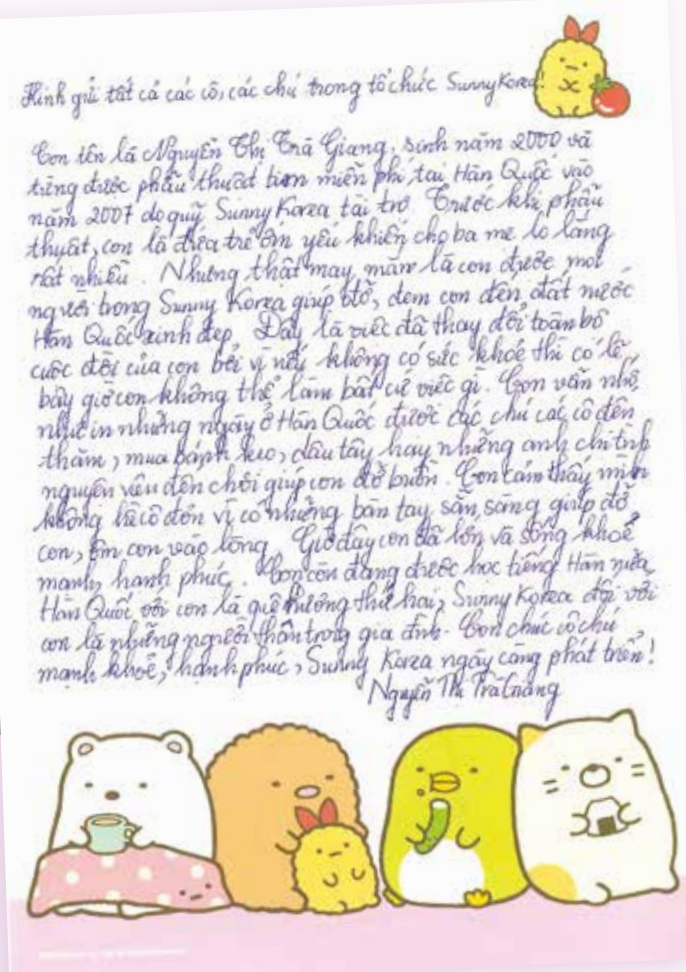 Kính gửi tất cả các cô, các chú trong tổ chức Sunny Korea!
Con tên là Nguyễn Thị Trà Giang, sinh năm 2000 và
từng được phẫu thuật tim miễn phí tại Hàn Quốc vào
năm 2007 do quỹ Sunny Korea tài trợ. Trước khi phẫu
thuật, con là đứa trẻ ốm yếu khiến cho ba mẹ lo lắng
rất nhiều. Nhưng thật may mắn là con được mọi
người trong Sunny Korea giúp đỡ, đem con đến đất nước
Hàn Quốc xinh đẹp. Đây là việc đã thay đổi toàn bộ
cuộc đời của con bởi vì nếu không có sức khoẻ thì có lẽ
bây giờ con không thể làm bất cứ việc gì. Con vẫn nhớ
như in những ngày ở Hàn Quốc được các chú các cô đến
thăm, mua bánh kẹo, dâu tây hay những anh chị tình
nguyện viên đến chơi giúp con đỡ buồn. Con cảm thấy mình
không hề cô đơn vì có những bàn tay sẵn sàng giúp đỡ
con, ôm con vào lòng. Giờ đây con đã lớn và sống khoẻ
mạnh, hạnh phúc. Con còn đang được học tiếng Hàn nữa,
Hàn Quốc với con là quê hương thứ hai, Sunny Korea đối với
con là những người thân trong gia đình. Con chúc cô chú
mạnh khoẻ, hạnh phúc, Sunny Korea ngày càng phát triển!
Nguyễn Thị Trà Giang